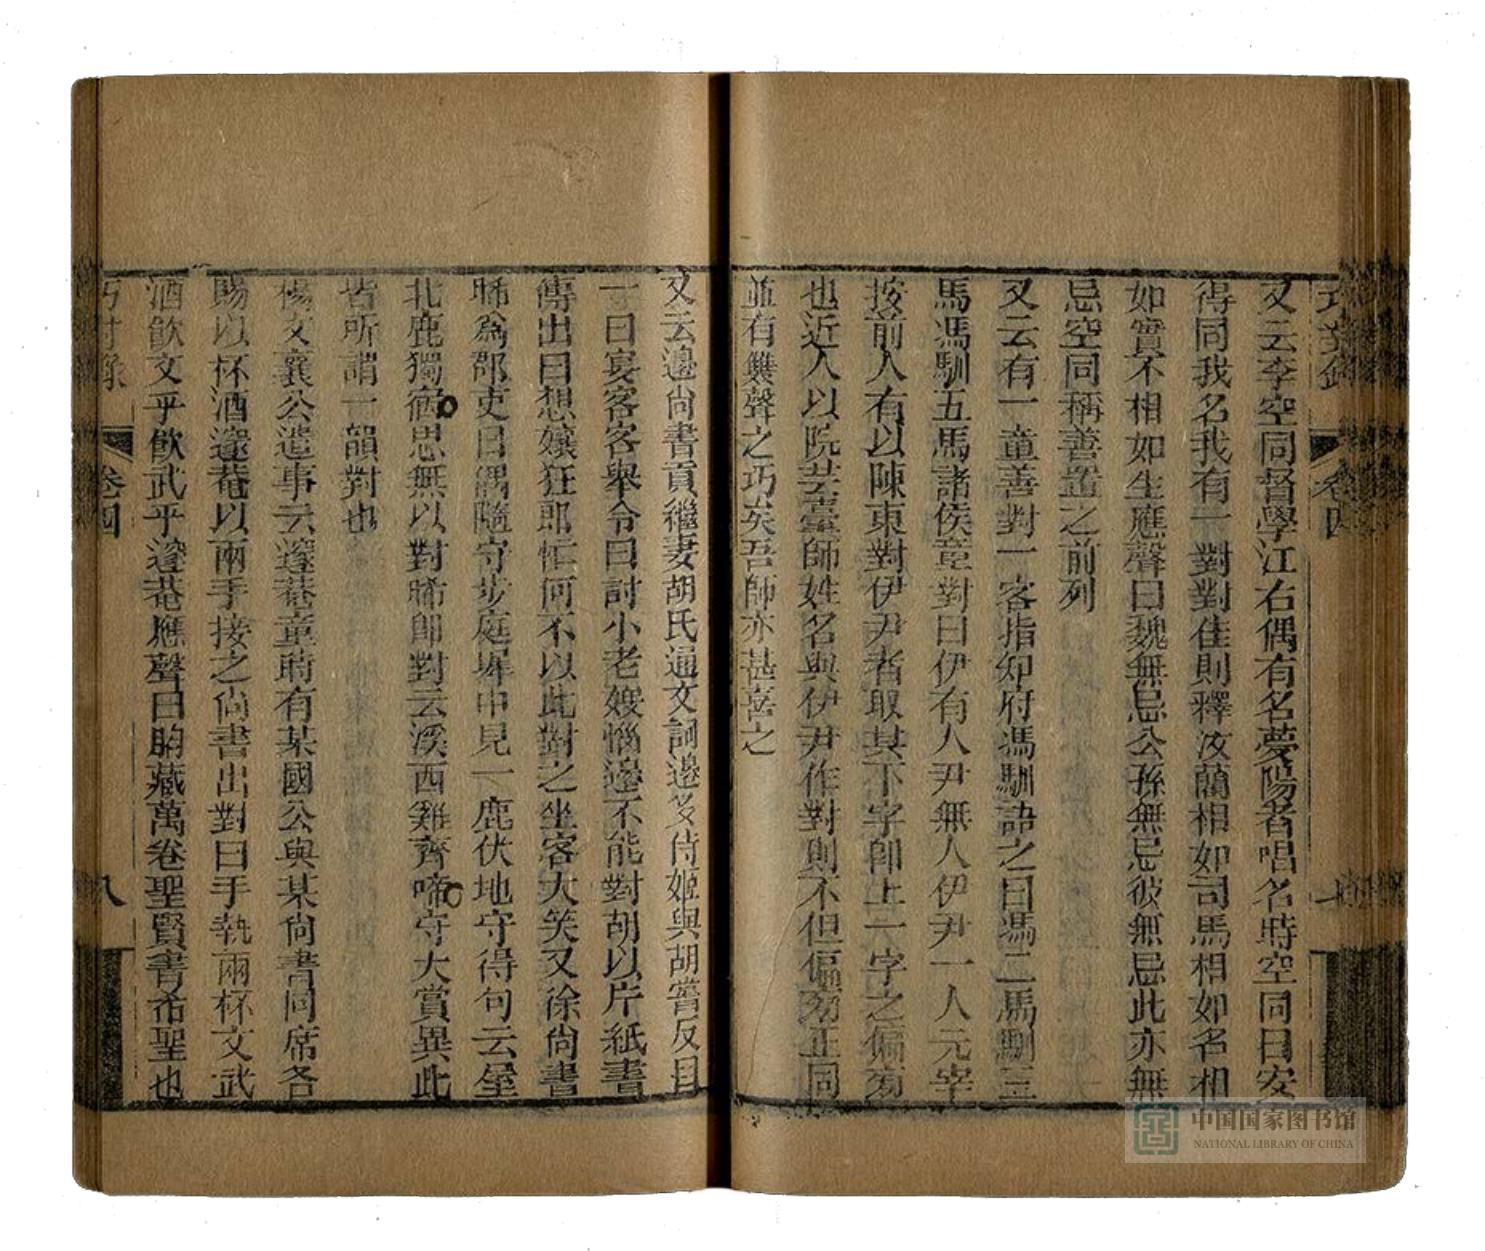 巧對錄 卷四 七
又云李空同督學江右偶有名夢陽者唱名時空同曰安
得同我名我有一對對佳則釋汝藺相如司馬相如名相
如實不相如生應聲曰魏無忌公孫無忌彼無忌此亦無
忌空同稱善置之前列
又云有一童善對一客指知府馮馴語之曰馮二馬馴三
馬馮馴五馬諸侯童對曰伊有人尹無人伊尹一人元宰
按前人有以陳東對伊尹者取其下字卽上一字之偏旁
也近人以阮芸臺師姓名與伊尹作對則不但偏旁正同
並有雙聲之巧矣吾師亦甚喜之
又云邊尚書貢繼妻胡氏通文詞邊多侍姬與胡嘗反目
一日宴客客舉令曰討小老嫂惱邊不能對胡以片紙書
傳出曰想孃狂郎忙何不以此對之坐客大笑又徐尚書
晞爲郡吏日偶隨守步庭墀中見一鹿伏地守得句云屋
北鹿獨宿思無以對晞卽對云溪西雞齊啼守大賞異此
皆所謂一韻對也
楊文襄公遺事云邃菴童時有某國公與某尙書同席各
賜以杯酒邃菴以兩手接之尙書出對曰手執兩杯文武
酒飮文乎飮武乎邃菴應聲曰胸藏萬卷聖賢書希聖也
巧對錄 卷四 八
中国国家图书馆
NATIONAL LIBRARY OF CHINA